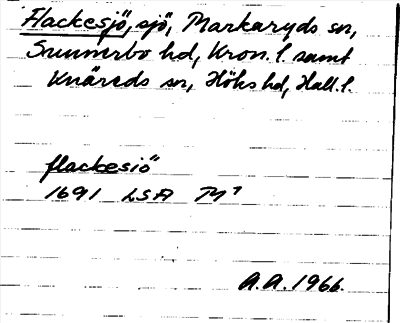 Flackesjö, sjö, Markaryds sn,
Sunnerbo hd, Kron. l. samt
Knäreds sn, Höks hd, Hall. l.
flackesiö
1691 LSA
A.A. 1966.